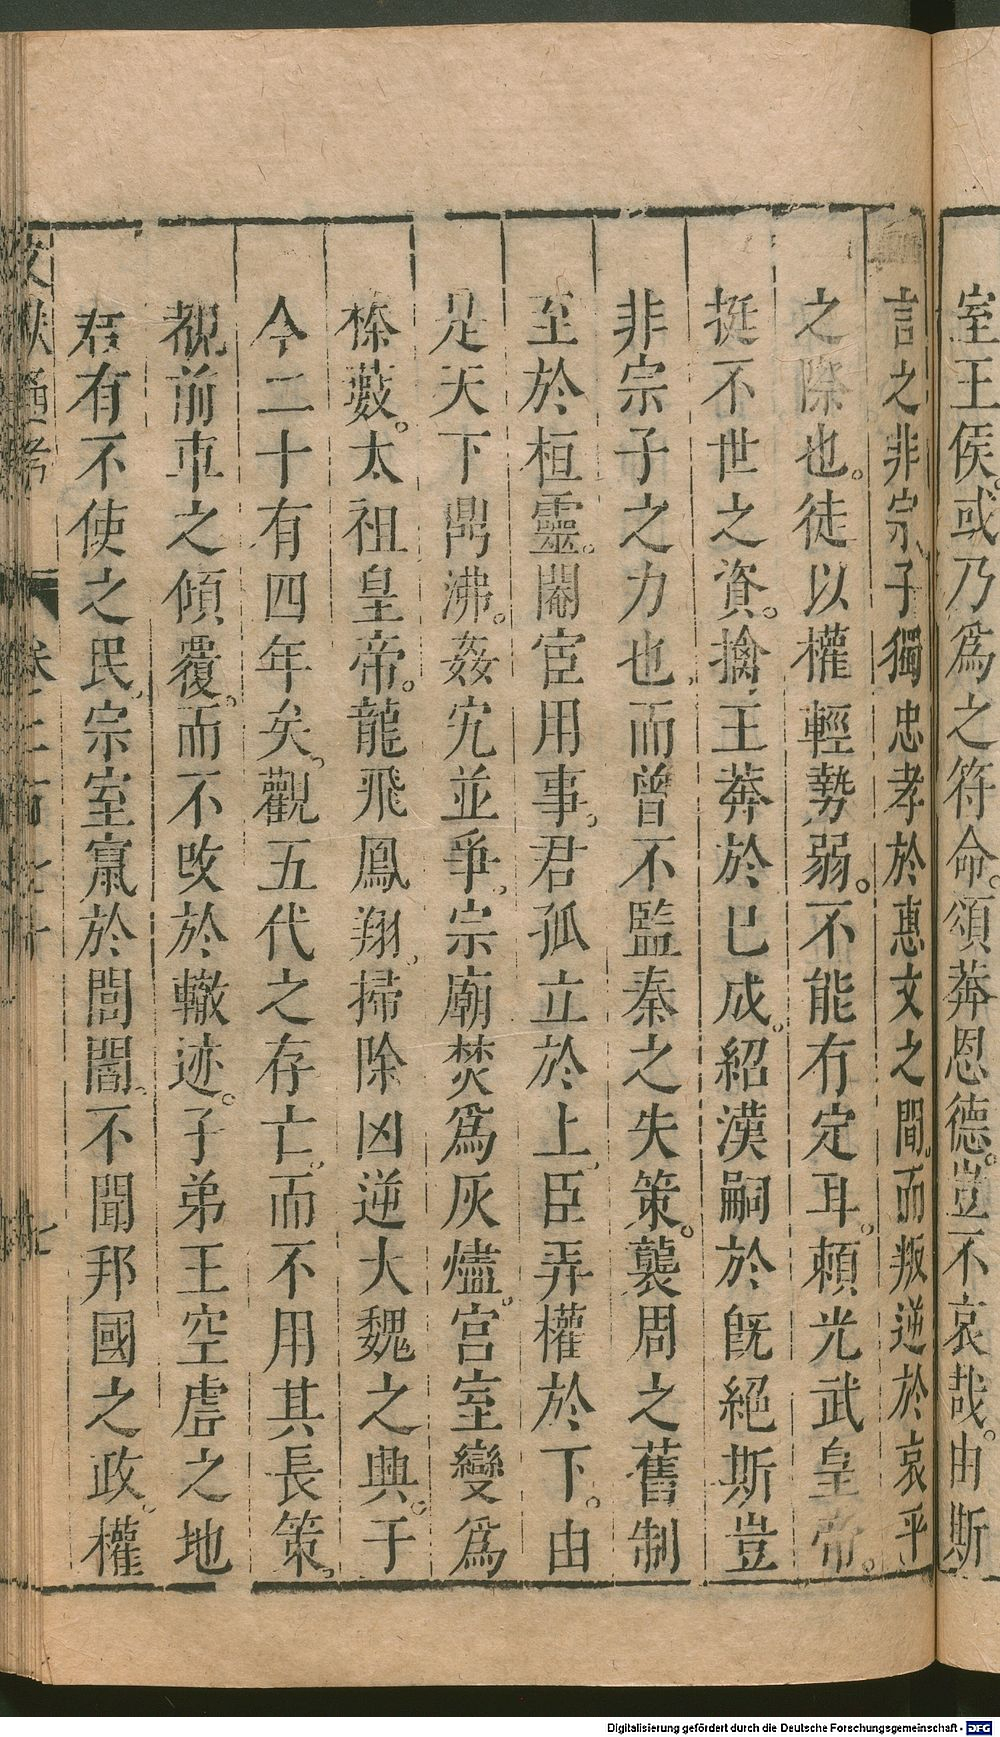 室王侯。或乃爲之符命。頌莽恩德。豈不哀哉。由斯
言之非宗、子獨忠孝於惠文之間。而叛逆於哀平
之際也。徒以權輕勢弱。不能有定耳。賴光武皇帝。
挺不世之資。擒王莽於已成。紹漢嗣於旣絕斯豈
非宗子之力也、而曾不監秦之失策。襲周之舊制
至於桓靈。閹宦用事。君孤立於上、臣弄權於下。由
是天下鼎沸。姦宄並爭、宗廟焚爲灰燼。宮室變爲
榛薮。太祖皇帝。龍飛鳳翔、掃除凶逆大魏之興。于
今二十有四年矣。觀五代之存亡、而不用其長策、
覩前車之傾覆。而不改於轍迹。子弟王空虛之地
君有不使之民、宗室竄於閭閻、不聞邦國之政、權
文獻通考 卷二百七十 七
Digitalisierung gefördert durch die Deutsche Forschungsgemeinschaft - DFG